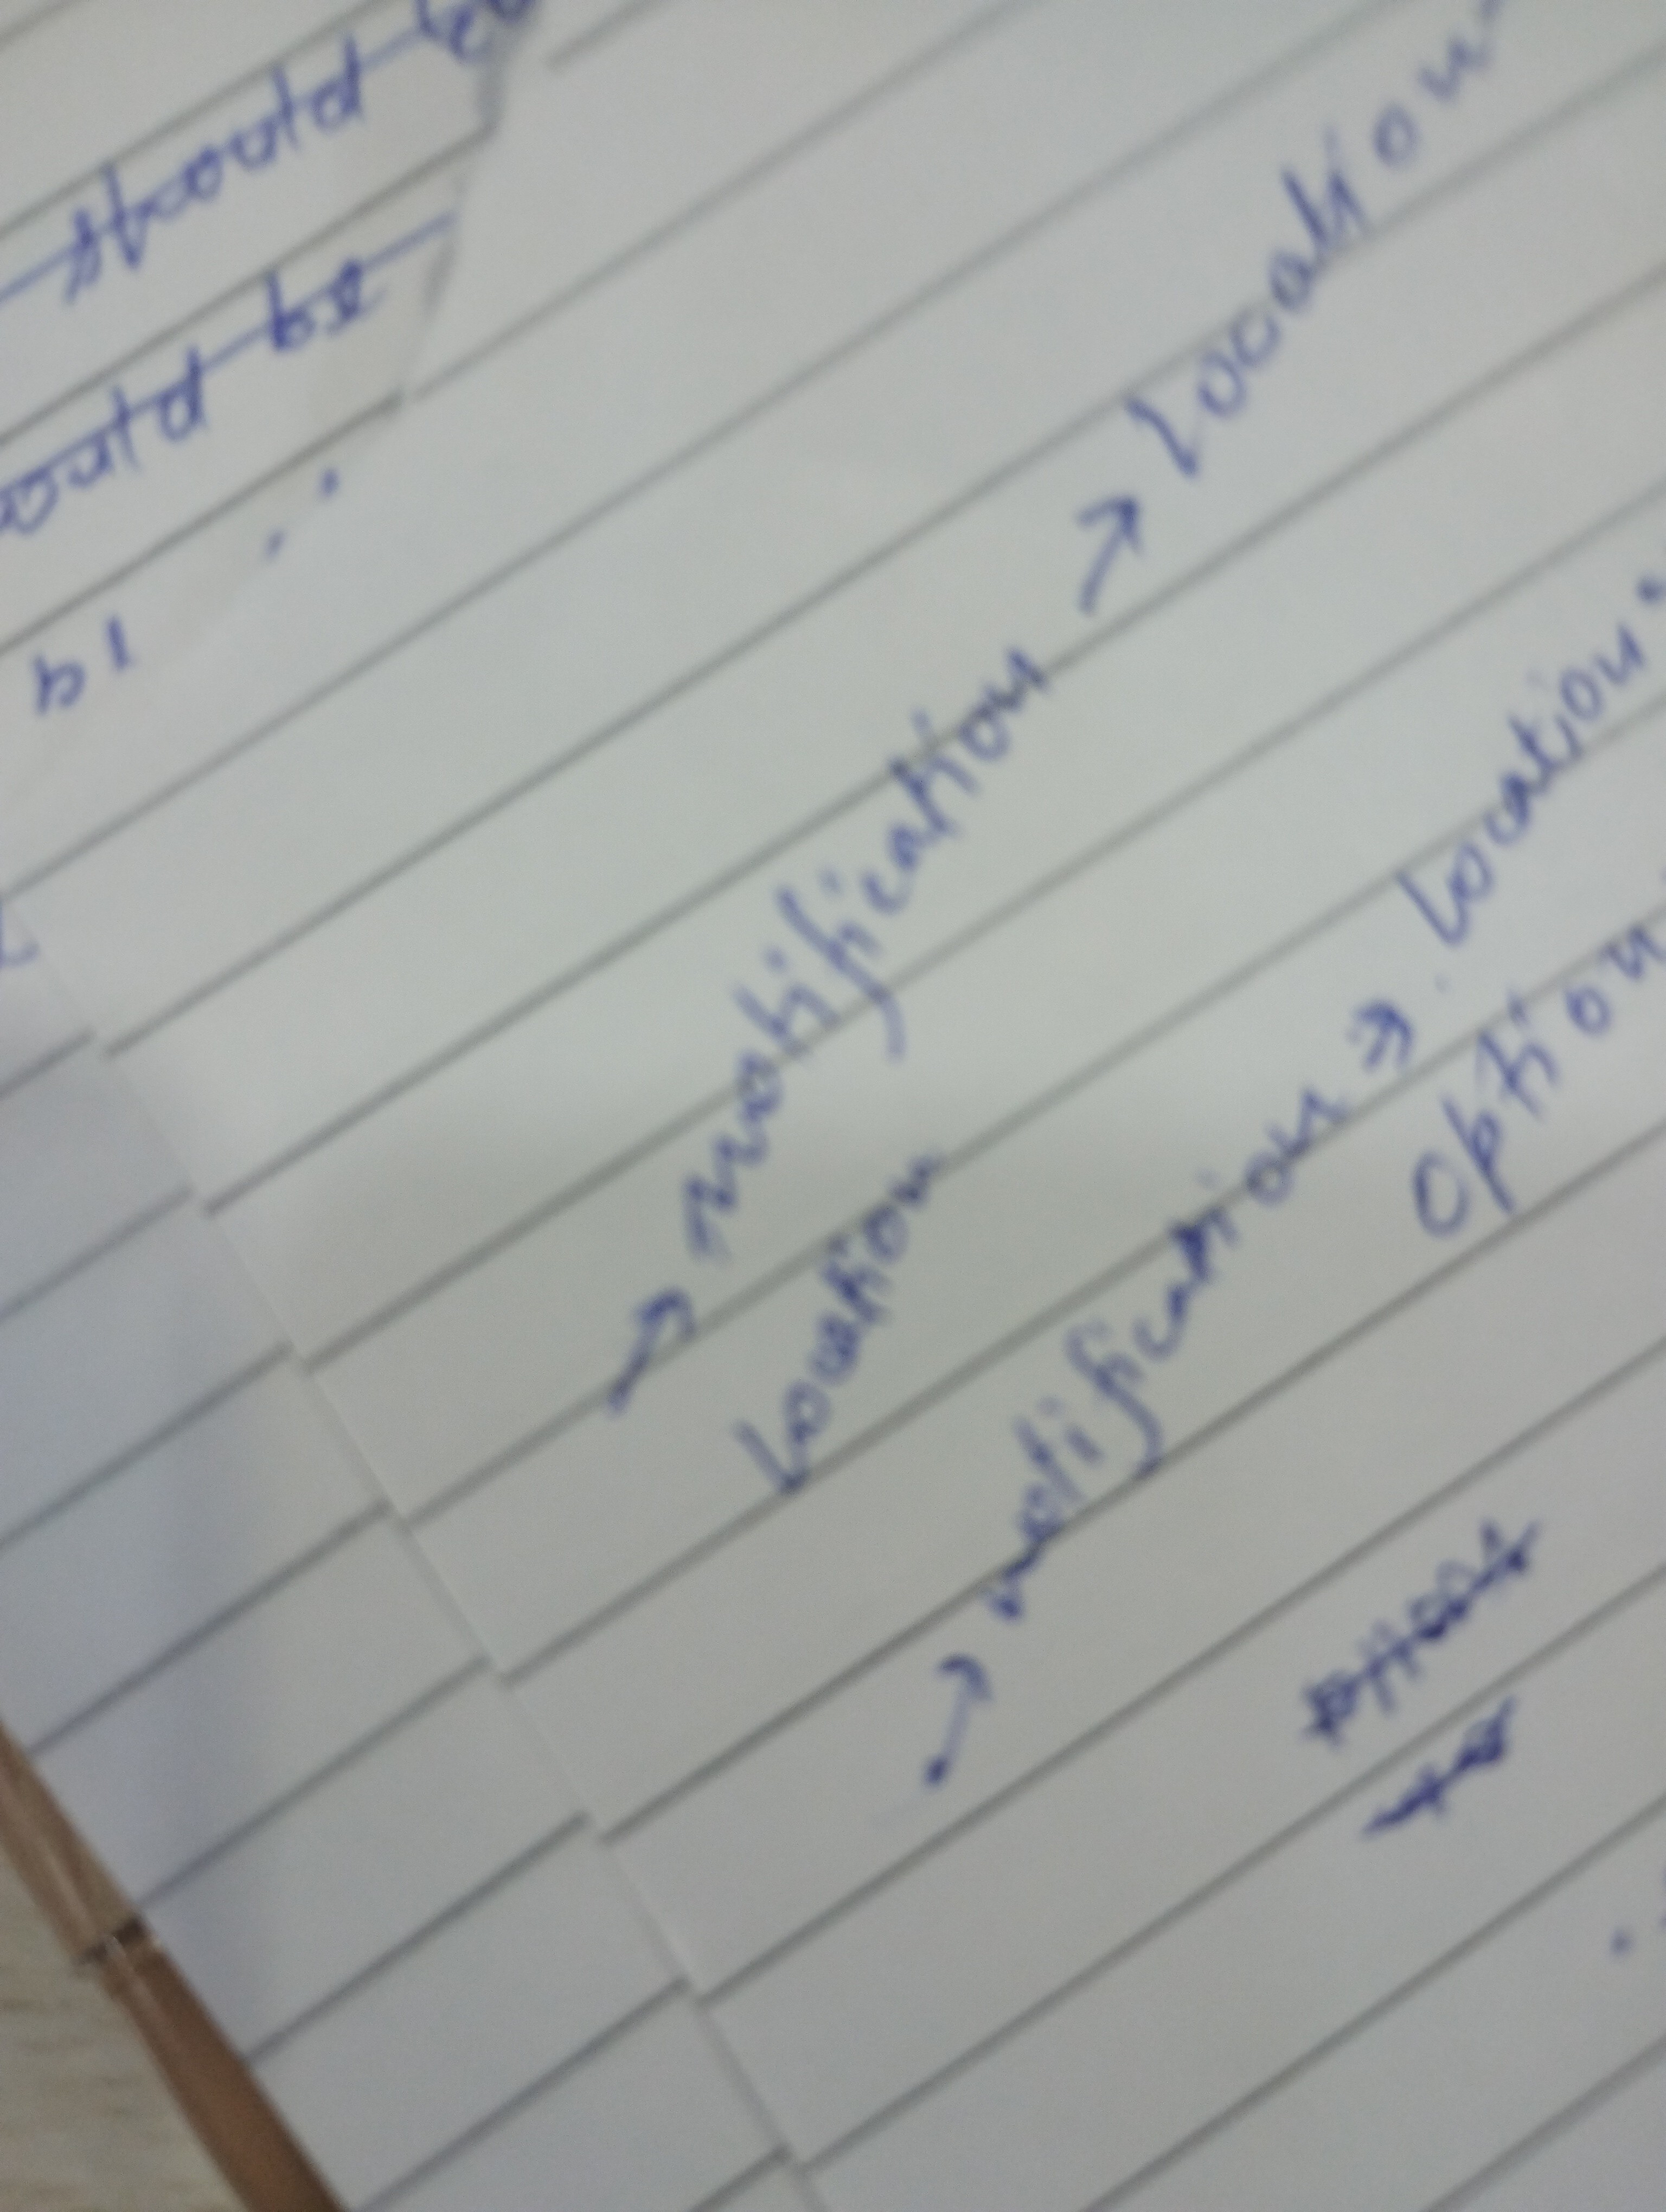 should
ould be
→ notification → Location
Location
→ notification → Location.
Option